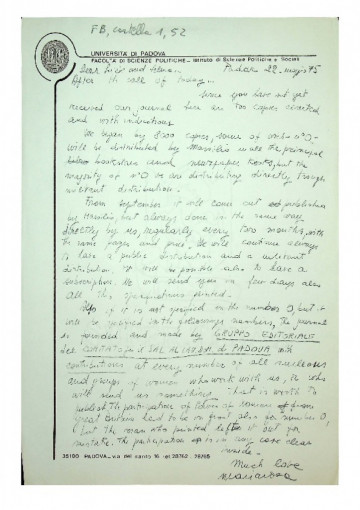 FB, cartella 1, 52
UNIVERSITÀ DI PADOVA
FACOLTÀ DI SCIENZE POLITICHE - Istituto di Scienze Politiche e Sociali
Dear and Padova 22 maggio 75
After the call of today.
Since you have not yet
received our journal here are two copies
and with indications.
We began by copies, some of n°0-
will be distributed by Marsilio in all the principal
bookstores and newspaper but the
majority of n°0 we are distributing directly through
militant distribution.
From September it will come out published
by Marsilio, but always done in the same way
directly by us, regularly every two months, with
the same pages and price. We will continue always
to have a public distribution and a militant
distribution. It will be possible also to have a
subscription. We will send you in few days also
all the printed.
if it is not specified in the number 0, but it
will be specified in the following numbers, the journal
is provided and made by GRUPPO EDITORIALE
del COMITATO PER IL SAL. AL LAV. DOM. DI PADOVA with
contributions at every number of all nucleous
and groups of women who work with us, to who
will send us something that is worth to
publish. The participation of of women of
great Britain had to be in front also for number 0,
but the man who printed it left it out for
mistake. The participation is in any case clear
inside.
Much love
Mariarosa
35100 PADOVA - via del santo 16 tel.